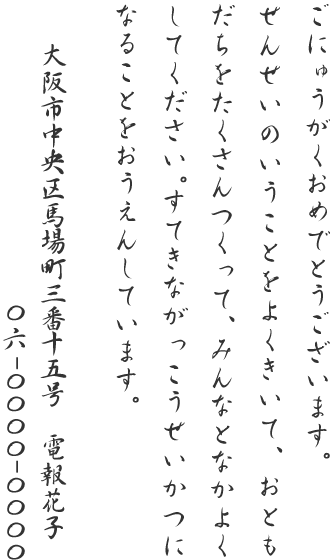 ごにゅうがくおめでとうございます。
せんせいのいうことをよくきいて、おとも
だちをたくさんつくって、みんなとなかよく
してください。すてきながっこうせいかつに
なることをおうえんしています。
大阪市中央区馬場町三番十五号　電報花子
〇六ー〇〇〇〇ー〇〇〇〇